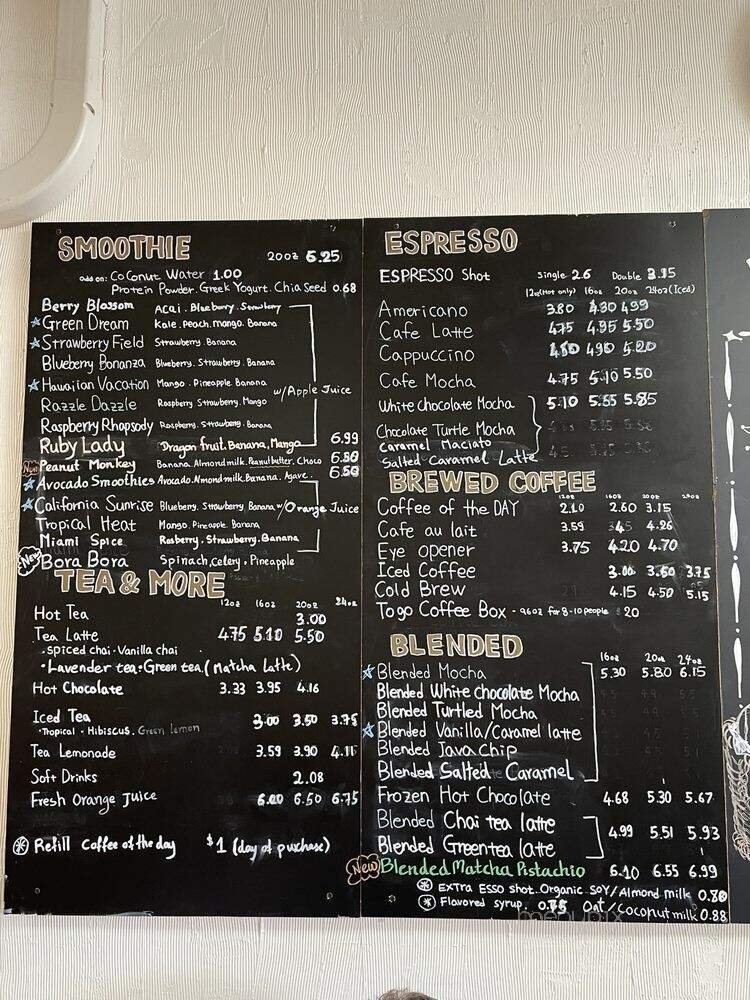 SMOOTHIE 20oz 6.25
add on: Coconut Water 1.00
Protein Powder. Greek Yogurt. Chia Seed 0.68
Berry Blossom Acai. Blueberry. Strawberry
Green Dream Kale. Peach. Mango. Banana
Strawberry Field Strawberry. Banana
Blueberry Bonanza Blueberry. Strawberry. Banana
Hawaiian Vacation Mango. Pineapple. Banana
w/Apple Juice
Razzle Dazzle Raspberry. Strawberry. Mango
Raspberry Rhapsody Raspberry. Strawberry. Banana
Ruby Lady Dragon fruit. Banana. Mango 6.99
New Peanut Monkey Banana. Almond milk. Peanut butter. Choco 6.50
Avocado Smoothies Avocado. Almond milk. Banana. Agave. 6.50
California Sunrise Blueberry. Strawberry. Banana w/Orange Juice
Tropical Heat Mango. Pineapple. Banana
Miami Spice Rasberry. Strawberry. Banana
New Bora Bora Spinach, celery, Pineapple
TEA & MORE
12oz 16oz 20oz 24oz
Hot Tea 3.00
Tea Latte 4.75 5.10 5.50
. spiced chai. Vanilla chai
• Lavender tea. Green tea (Matcha Latte)
Hot Chocolate 3.33 3.95 4.16
Iced Tea 3.00 3.50 3.75
• Tropical • Hibiscus. Green lemon
Tea Lemonade 3.59 3.90 4.15
Soft Drinks 2.08
Fresh Orange Juice 6.00 6.50 6.75
Refill Coffee of the day $1 (day of purchase)
ESPRESSO
ESPRESSO Shot Single 2.6 Double 3.15
12oz(Hot only) 16oz 20oz 24oz(Iced)
Americano 3.80 4.30 4.99
Cafe Latte 4.75 4.95 5.50
Cappuccino 4.50 4.90 5.20
Cafe Mocha 4.75 5.10 5.50
White chocolate Mocha 5.10 5.55 5.85
Chocolate Turtle Mocha
Caramel Maciato
Salted Caramel Latte
BREWED COFFEE
12oz 16oz 20oz 24oz
Coffee of the DAY 2.10 2.60 3.15
Cafe au lait 3.59 3.45 4.26
Eye opener 3.75 4.20 4.70
Iced Coffee 3.00 3.50 3.75
Cold Brew 4.15 4.50 5.15
To go Coffee Box - 96oz for 8-10 people $20
BLENDED
16oz 20oz 24oz
Blended Mocha 5.30 5.80 6.15
Blended White chocolate Mocha
Blended Turtled Mocha
Blended Vanilla/Caramel latte
Blended Java chip
Blended Salted Caramel
Frozen Hot Chocolate 4.68 5.30 5.67
Blended Chai tea latte
4.99 5.51 5.93
Blended Green tea latte
New Blended Matcha Pistachio 6.10 6.55 6.99
Extra Esso shot. Organic Soy/Almond milk 0.80
Flavored syrup. 0.75 Oat/Coconut milk 0.88
menupix